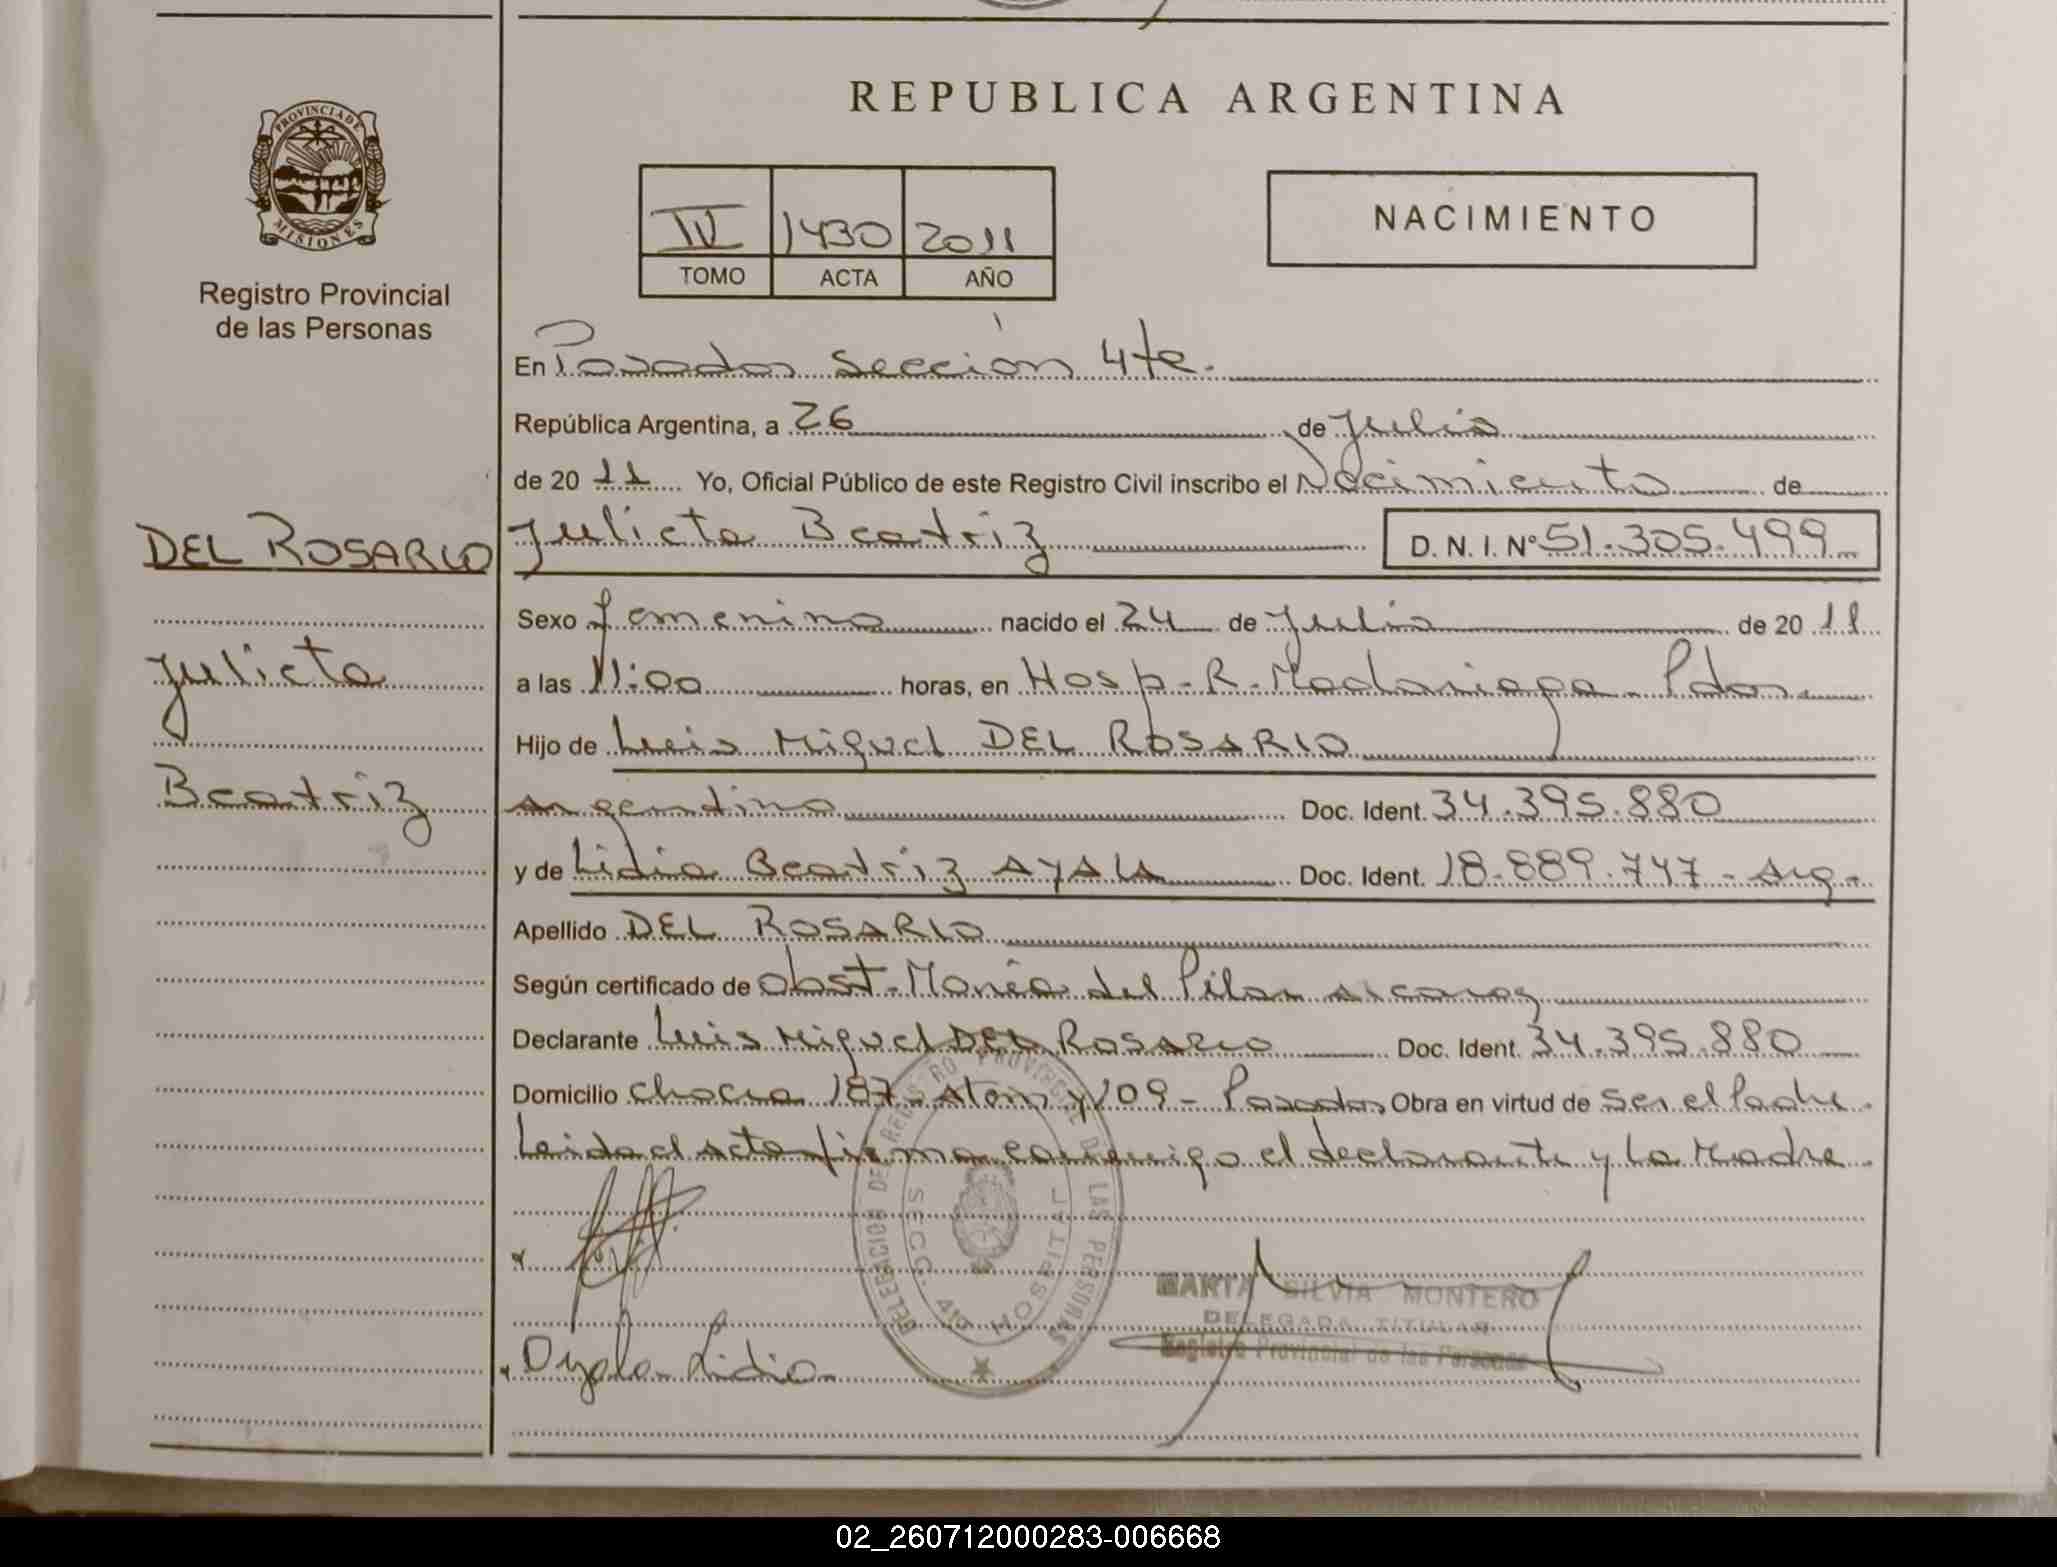 REPUBLICA ARGENTINA
PROVINCIA DE
MISIONES
Registro Provincial
de las Personas
IV 1430 2011
TOMO ACTA AÑO
NACIMIENTO
En Posadas Sección 4ta.
República Argentina, a 26 de Julio
de 20 11 Yo, Oficial Público de este Registro Civil inscribo el Nacimiento de
DEL ROSARIO
Julieta Beatriz D. N. I. Nº 51.305.499
Sexo femenino nacido el 24 de Julio de 20 11
Julieta
a las 11:00 horas, en Hosp. R. Madariaga. Pdas.
Hijo de Luis Miguel DEL ROSARIO
Beatriz
Argentino Doc. Ident. 34.395.880
y de Lidia Beatriz AYALA Doc. Ident. 18.889.747 - Arg.
Apellido DEL ROSARIO
Según certificado de Obst. María del Pilar Alcaraz
Declarante Luis Miguel DEL ROSARIO Doc. Ident. 34.395.880
Domicilio Chacra 187 - Atom y 109 - Posadas Obra en virtud de ser el Padre.
Leida el acta firma conmigo el declarante y la Madre.
DELEGACION DE REGISTRO PROVINCIAL DE LAS PERSONAS
SECC. 4ta HOSPITAL
MARTA SILVIA MONTERO
DELEGADA TITULAR
Registro Provincial de las Personas
Ayala Lidia
02_260712000283-006668